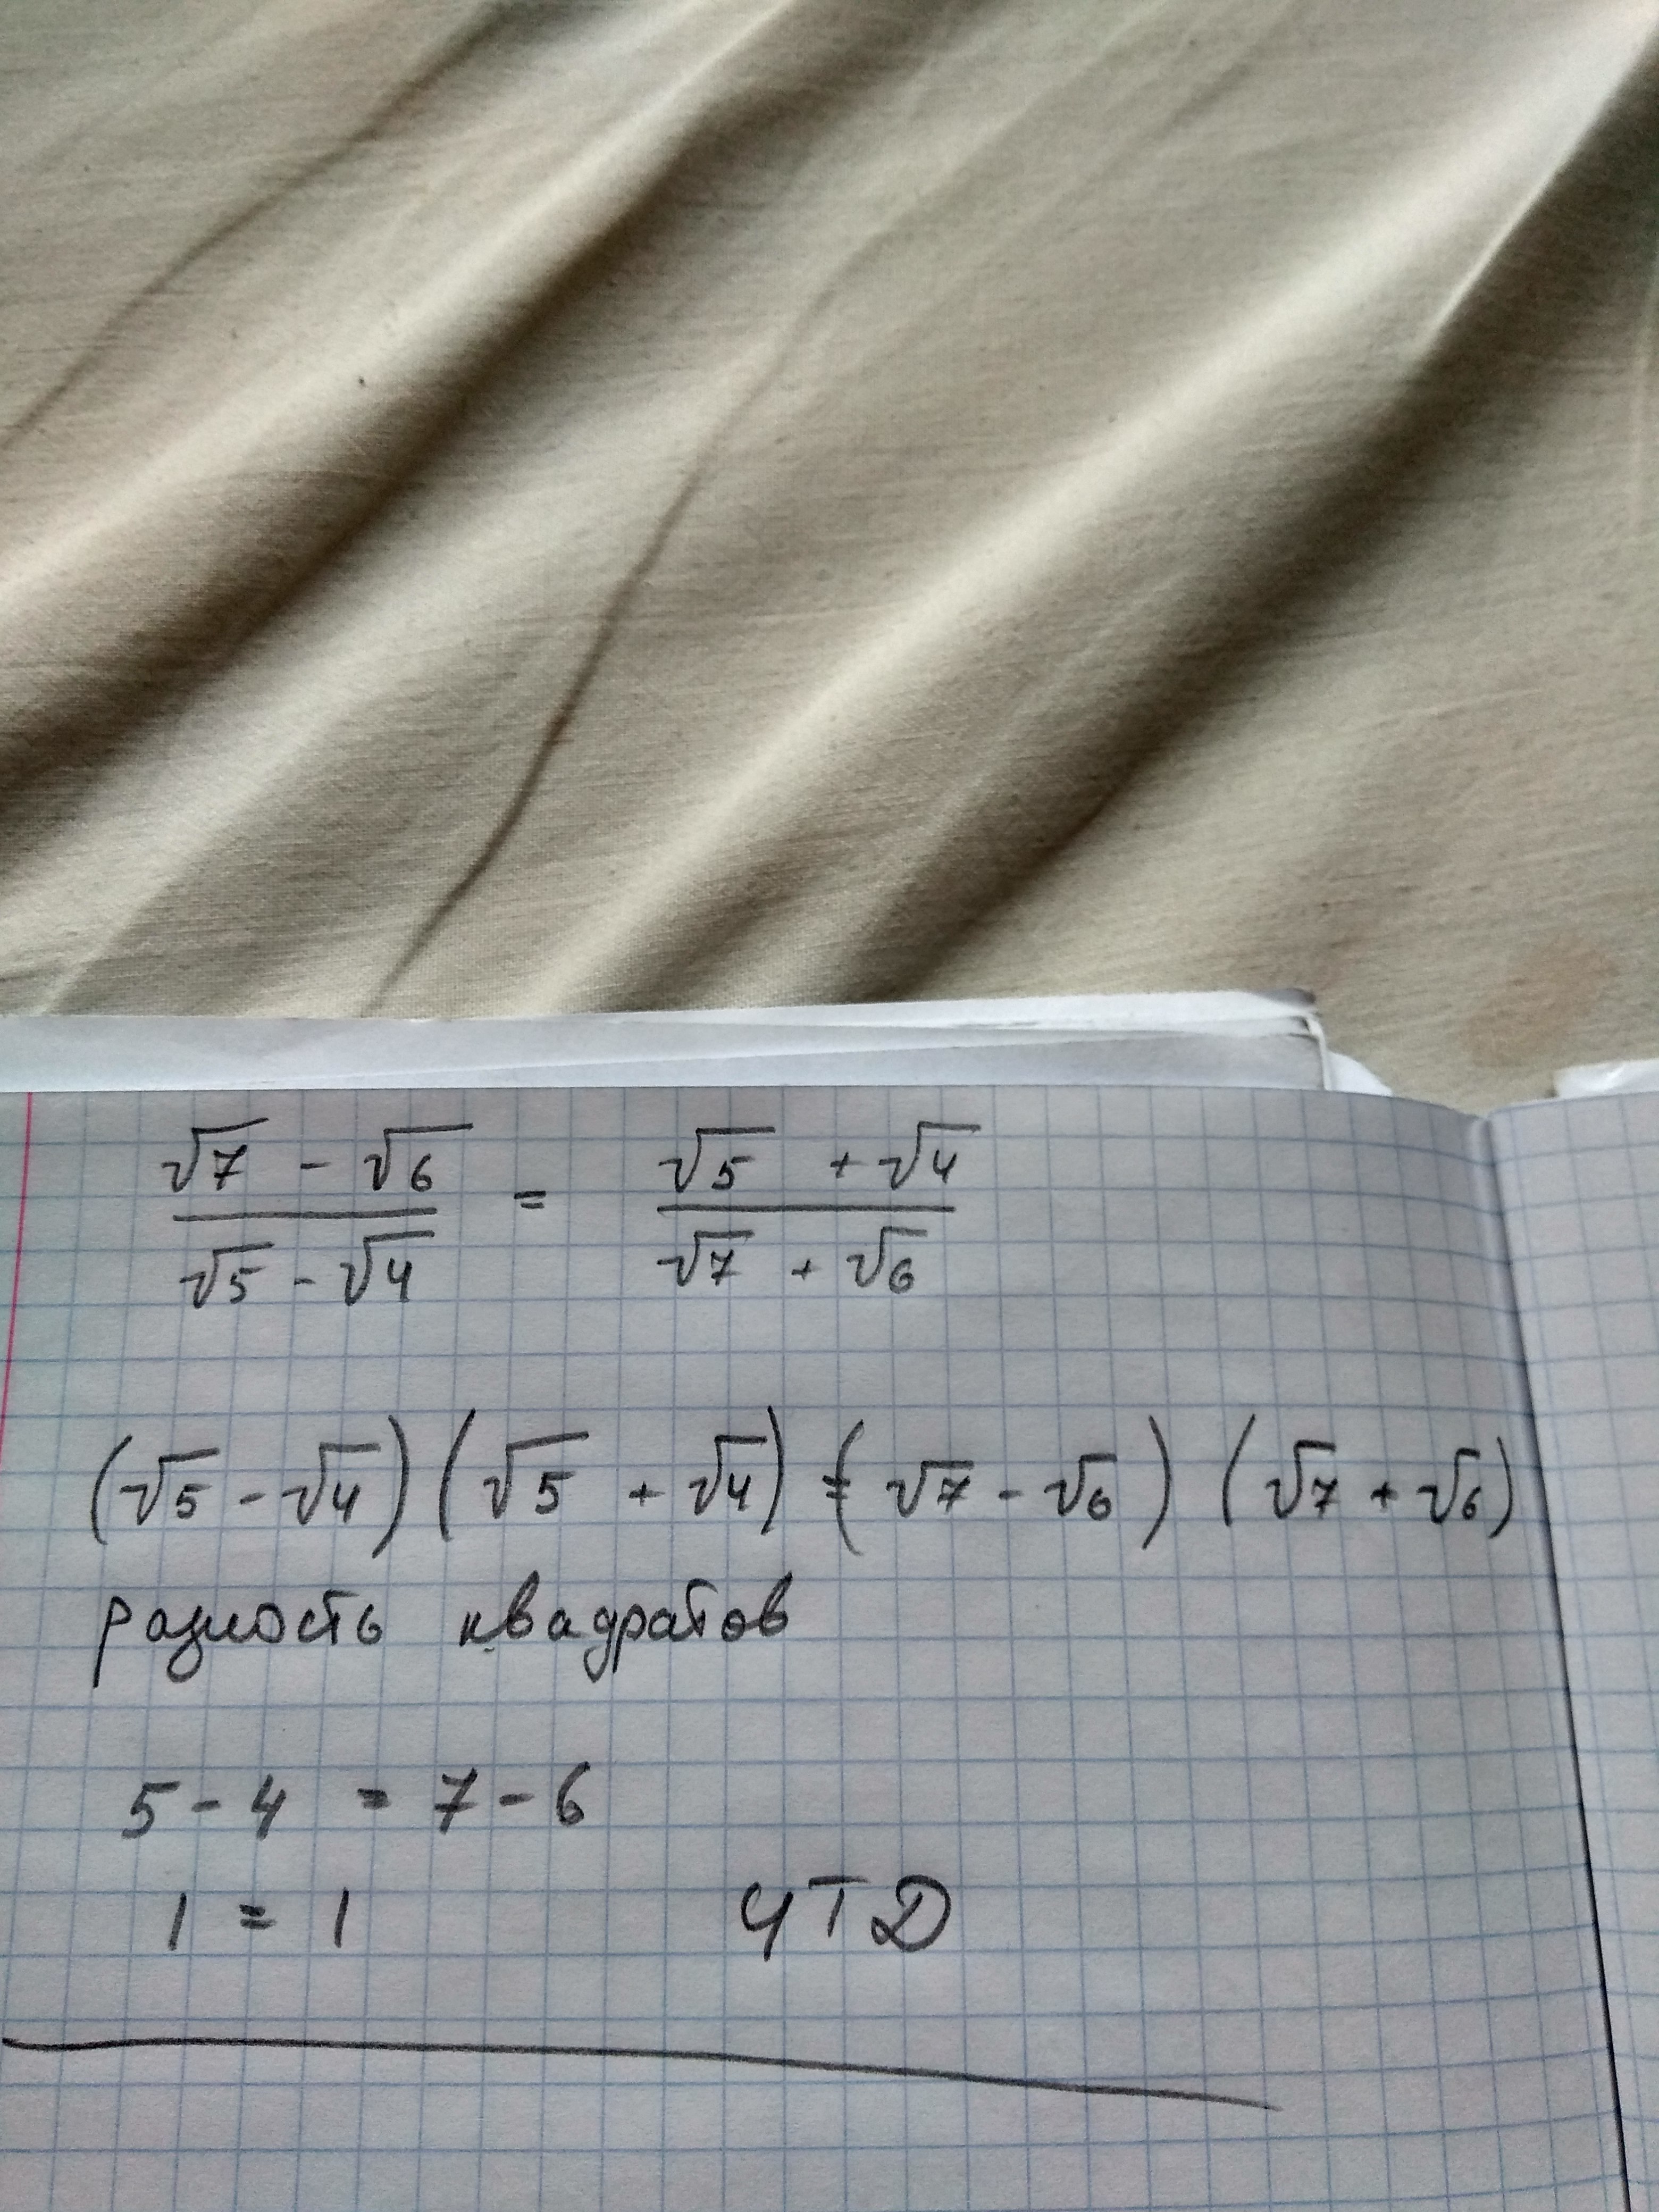 √7 - √6 / √5 - √4 = √5 + √4 / √7 + √6
(√5 - √4) (√5 + √4) = (√7 - √6) (√7 + √6)
разность квадратов
5 - 4 = 7 - 6
1 = 1 ЧТД